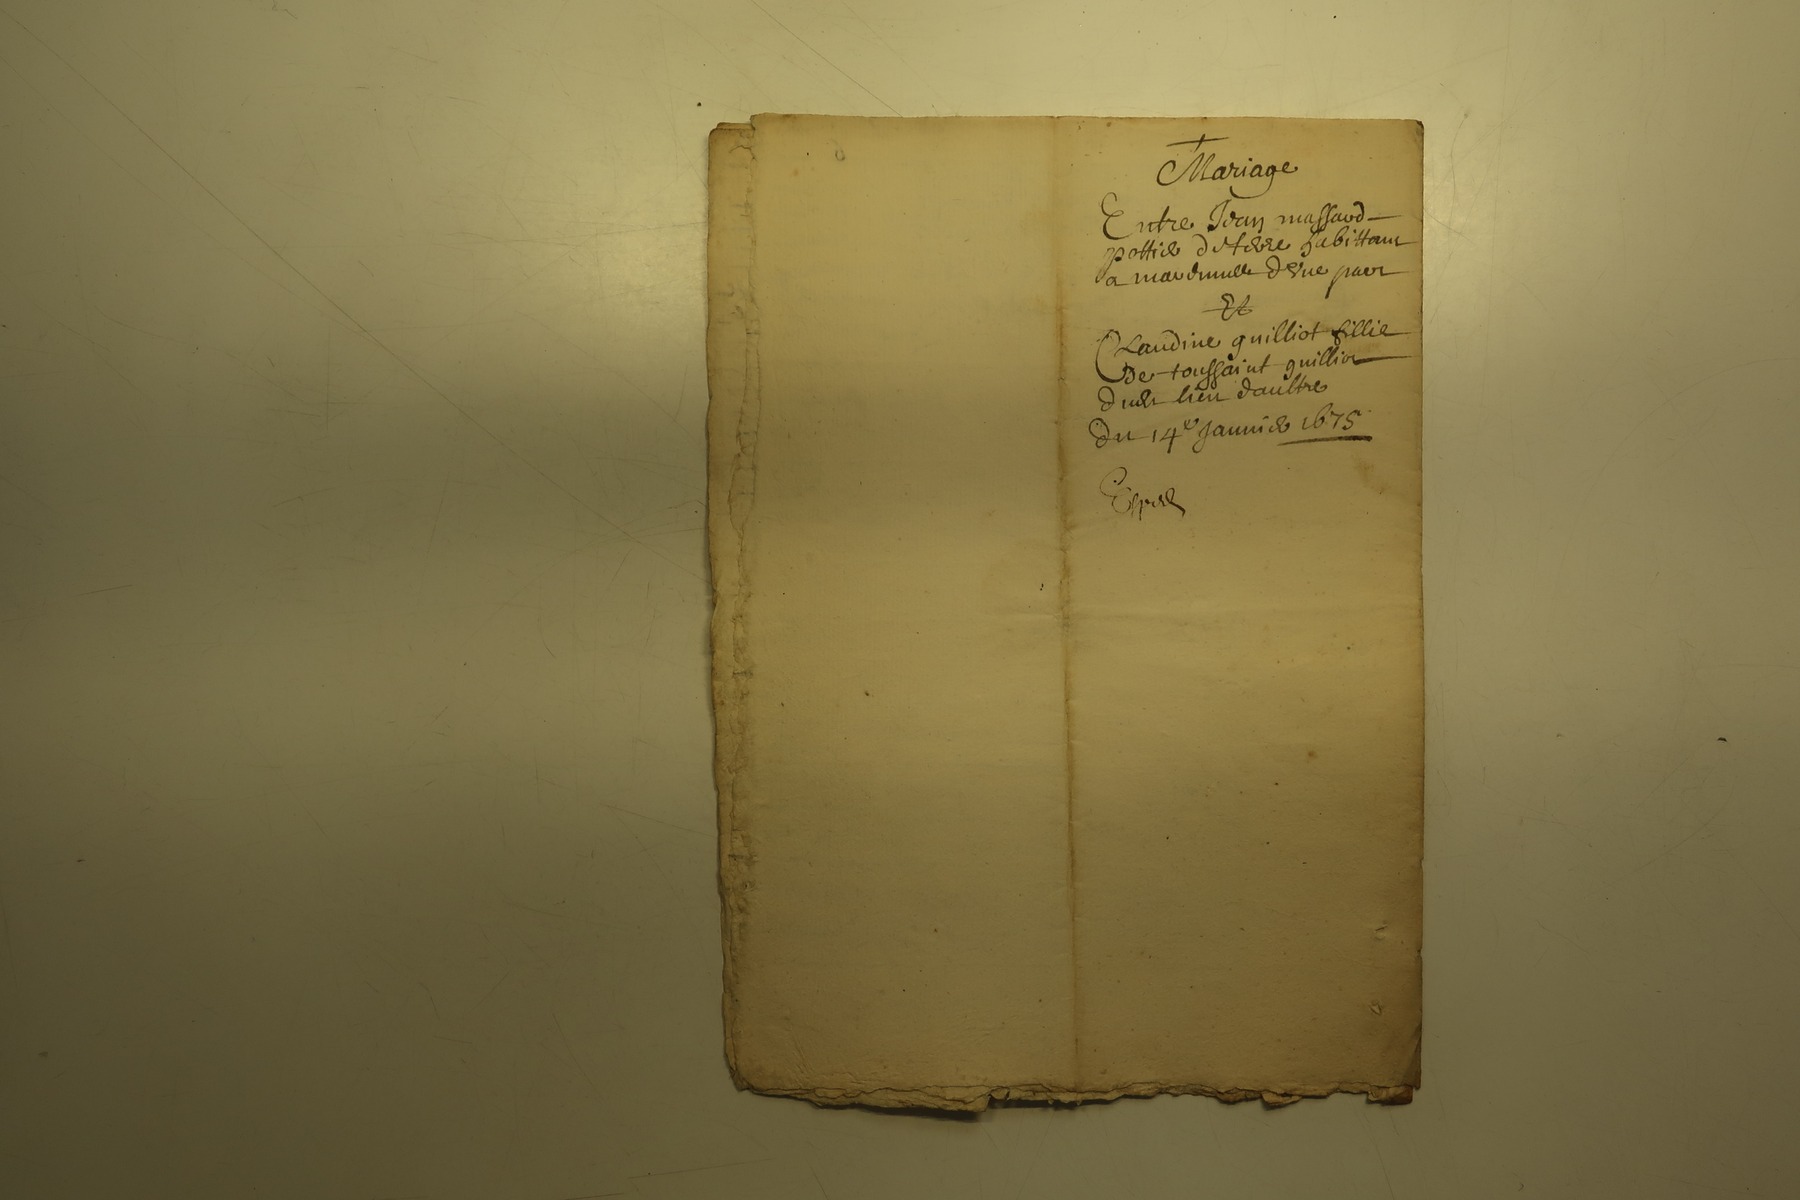 Mariage
Entre Jean massard
pottier de terre habittant
a d'une part
Et
Claudine guilliot fillie
de toussaint guilliot
dudt lieu d'aultre
Du 14e Janvier 1675
Exped